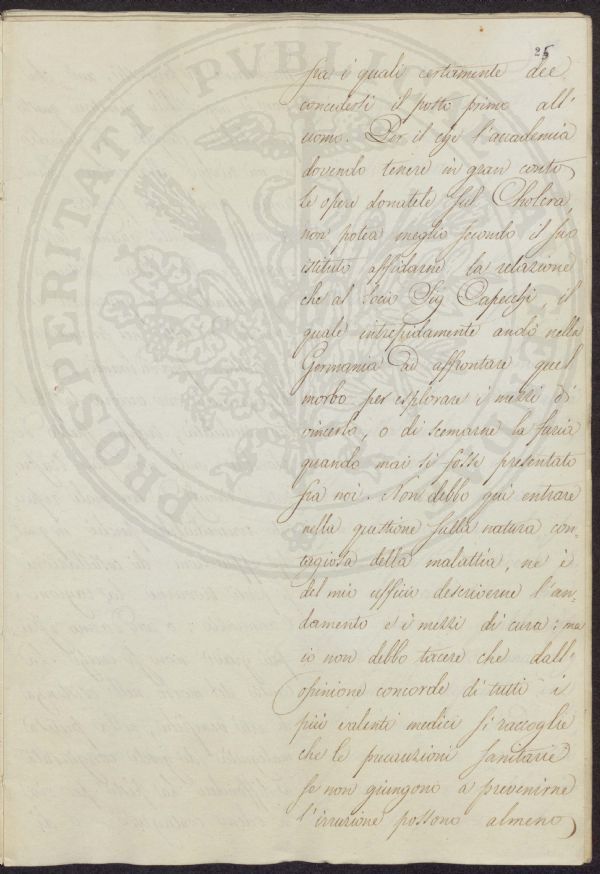 25
fra i quali certamente dee
concedersi il posto primo all'
uomo. Per il che l'accademia
dovendo tenere in gran conto
le opere donatele sul Cholera,
non potea meglio secondo il suo
istituto affidarne la relazione
che al Socio Sig Capecchi, il
quale intrepidamente andò nella
Germania ad affrontare quel
morbo per esplorare i mezzi di
vincerlo, o di scemarne la furia
quando mai si fosse presentato
fra noi. Non debbo qui entrare
nella questione sulla natura con-
tagiosa della malattia, ne è
del mio ufficio descriverne l'an-
damento e i mezzi di cura: ma
io non debbo tacere che dall'
opinione concorde di tutti i
più valenti medici si raccoglie
che le precauzioni sanitarie
se non giungono a prevenirne
l'irruzione possono almeno
PROSPERITATI PVBLICAE